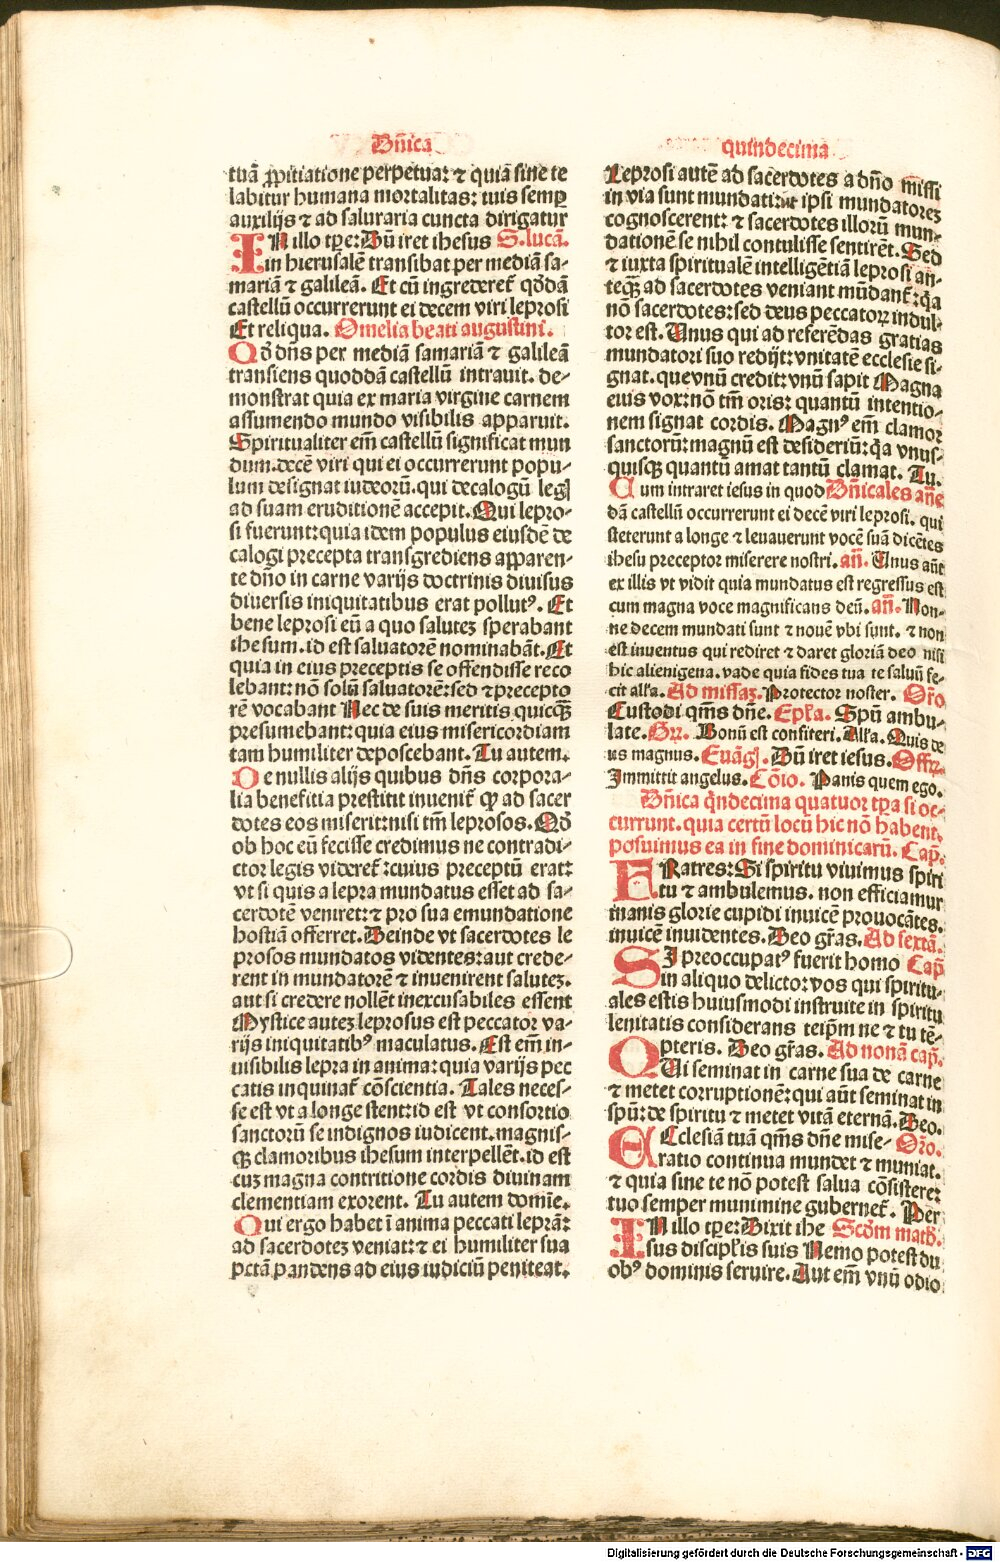 Dñica
tuã ꝓpitiatione perpetua: ⁊ quiã sine te
labitur humana mortalitas: tuis semꝑ
auxilijs ⁊ ad saluraria cuncta dirigatur
IN illo tꝑe: Dũ iret ihesus S. lucã.
in hierusalẽ transibat per mediã sa-
mariã ⁊ galileã. Et cũ ingrederet᷑ qđdã
castellũ occurrerunt ei decem viri leprosi
Et reliqua. Omelia beati augustini.
Qđ dñs per mediã samariã ⁊ galileã
transiens quoddã castellũ intrauit. de-
monstrat quia ex maria virgine carnem
assumendo mundo visibilis apparuit.
Spiritualiter em̃ castellũ significat mun
dum. decẽ viri qui ei occurrerunt popu-
lum designat iudeorũ. qui decalogũ legꝭ
ad suam eruditionẽ accepit. Qui lepro-
si fuerunt: quia idem populus eiusdẽ de
calogi precepta transgrediens apparen-
te dño in carne varijs doctrinis diuisus
diuersis iniquitatibus erat pollutꝰ. Et
bene leprosi eũ a quo salutez sperabant
ihesum. id est saluatorẽ nominabãt. Et
quia in eius preceptis se offendisse reco
lebant: nõ solũ saluatorẽ: sed ⁊ precepto
rẽ vocabant Nec de suis meritis quicqꝫ̃
presumebant: quia eius misericordiam
tam humiliter deposcebant. Tu autem.
De nullis alijs quibus dñs corpora-
lia benefitia prestitit inuenit᷑ ꝙ ad sacer
dotes eos miserit: nisi tm̃ leprosos. Qđ
ob hoc eũ fecisse credimus ne contradi-
ctor legis videret᷑: cuius preceptũ erat:
vt si quis a lepra mundatus esset ad sa-
cerdotẽ veniret: ⁊ pro sua emundatione
hostiã offerret. Deinde vt sacerdotes le
prosos mundatos videntes: aut crede-
rent in mundatorẽ ⁊ inuenirent salutez.
aut si credere nollent inexcusabiles essent
Mystice autez leprosus est peccator va-
rijs iniquitatibꝰ maculatus. Est em̃ in-
uisibilis lepra in anima: quia varijs pec
catis inquinat᷑ cõscientia. Tales neces-
se est vt a longe stent: id est vt consortio
sanctorũ se indignos iudicent. magnis-
qꝫ clamoribus ihesum interpellẽt. id est
cuz magna contritione cordis diuinam
clementiam exorent. Tu autem domĩe.
Qui ergo habet ĩ anima peccati leprã:
ad sacerdotez veniat: ⁊ ei humiliter sua
pctã pandens ad eius iudiciũ peniteat.
quindecima
Leprosi autẽ ad sacerdotes a dño missi
in via sunt mundati: ut ipsi mundatorez
cognoscerent: ⁊ sacerdotes illorũ mun-
dationẽ se nihil contulisse sentirẽt. Sed
⁊ iuxta spiritualẽ intelligẽtiã leprosi an-
teqꝫ̃ ad sacerdotes veniant mũdant᷑: q̃a
nõ sacerdotes: sed deus peccatorꝝ indul-
tor est. Unus qui ad referẽdas gratias
mundatori suo redijt: vnitatẽ ecclesie si-
gnat. que vnũ credit: vnũ sapit Magna
eius vox: nõ tm̃ oris: quantũ intentio-
nem signat cordis. Magnꝰ em̃ clamor
sanctorũ: magnũ est desideriũ: q̃a vnus-
quisqꝫ quantũ amat tantũ clamat. Tu.
Cum intraret iesus in quod Dñicales añe
dã castellũ occurrerunt ei decẽ viri leprosi. qui
steterunt a longe ⁊ leuauerunt vocẽ suã dicẽtes
ihesu preceptor miserere nostri. añ. Unus aũt
ex illis vt vidit quia mundatus est regressus est
cum magna voce magnificans deũ. añ. Non-
ne decem mundati sunt ⁊ nouẽ vbi sunt. ⁊ non
est inuentus qui rediret ⁊ daret gloriã deo nisi
hic alienigena. vade quia fides tua te saluũ fe-
cit alľa. Ad missaz. Protector noster. Oño
Custodi qm̃s dñe. Epľa. Spũ ambu-
late. Gꝛ. Bonũ est confiteri. Alľa. Quis de
us magnus. Euãgꝭ. Dũ iret iesus. Offꝛ.
Immittit angelus. Cõio. Panis quem ego.
Dñica q̃ndecima quatuor tꝑa si oc-
currunt. quia certũ locũ hic nõ habent.
posuimus ea in fine dominicarũ. Cap̃.
FRatres: Si spiritu viuimus spiri
tu ⁊ ambulemus. non efficiamur
inanis glorie cupidi inuicẽ prouocãtes.
inuicẽ inuidentes. Deo gr̃as. Ad sextã.
SI preoccupatꝰ fuerit homo Cap̃
in aliquo delicto: vos qui spiritu-
ales estis huiusmodi instruite in spiritu
lenitatis considerans teip̃m ne ⁊ tu tẽ-
pteris. Deo gr̃as. Ad nonã cap̃.
QUi seminat in carne sua de carne
⁊ metet corruptionẽ: qui aũt seminat in
spũ: de spiritu ⁊ metet vitã eternã. Deo.
ECclesiã tuã qm̃s dñe mise- Oño.
ratio continua mundet ⁊ muniat.
⁊ quia sine te nõ potest salua cõsistere:
tuo semper munimine gubernet᷑. Per
IN illo tꝑe: Dixit ihe Scđm math̃.
sus discipľis suis Nemo potest du
obꝰ dominis seruire. Aut em̃ vnũ odio
Digitalisierung gefördert durch die Deutsche Forschungsgemeinschaft - DFG